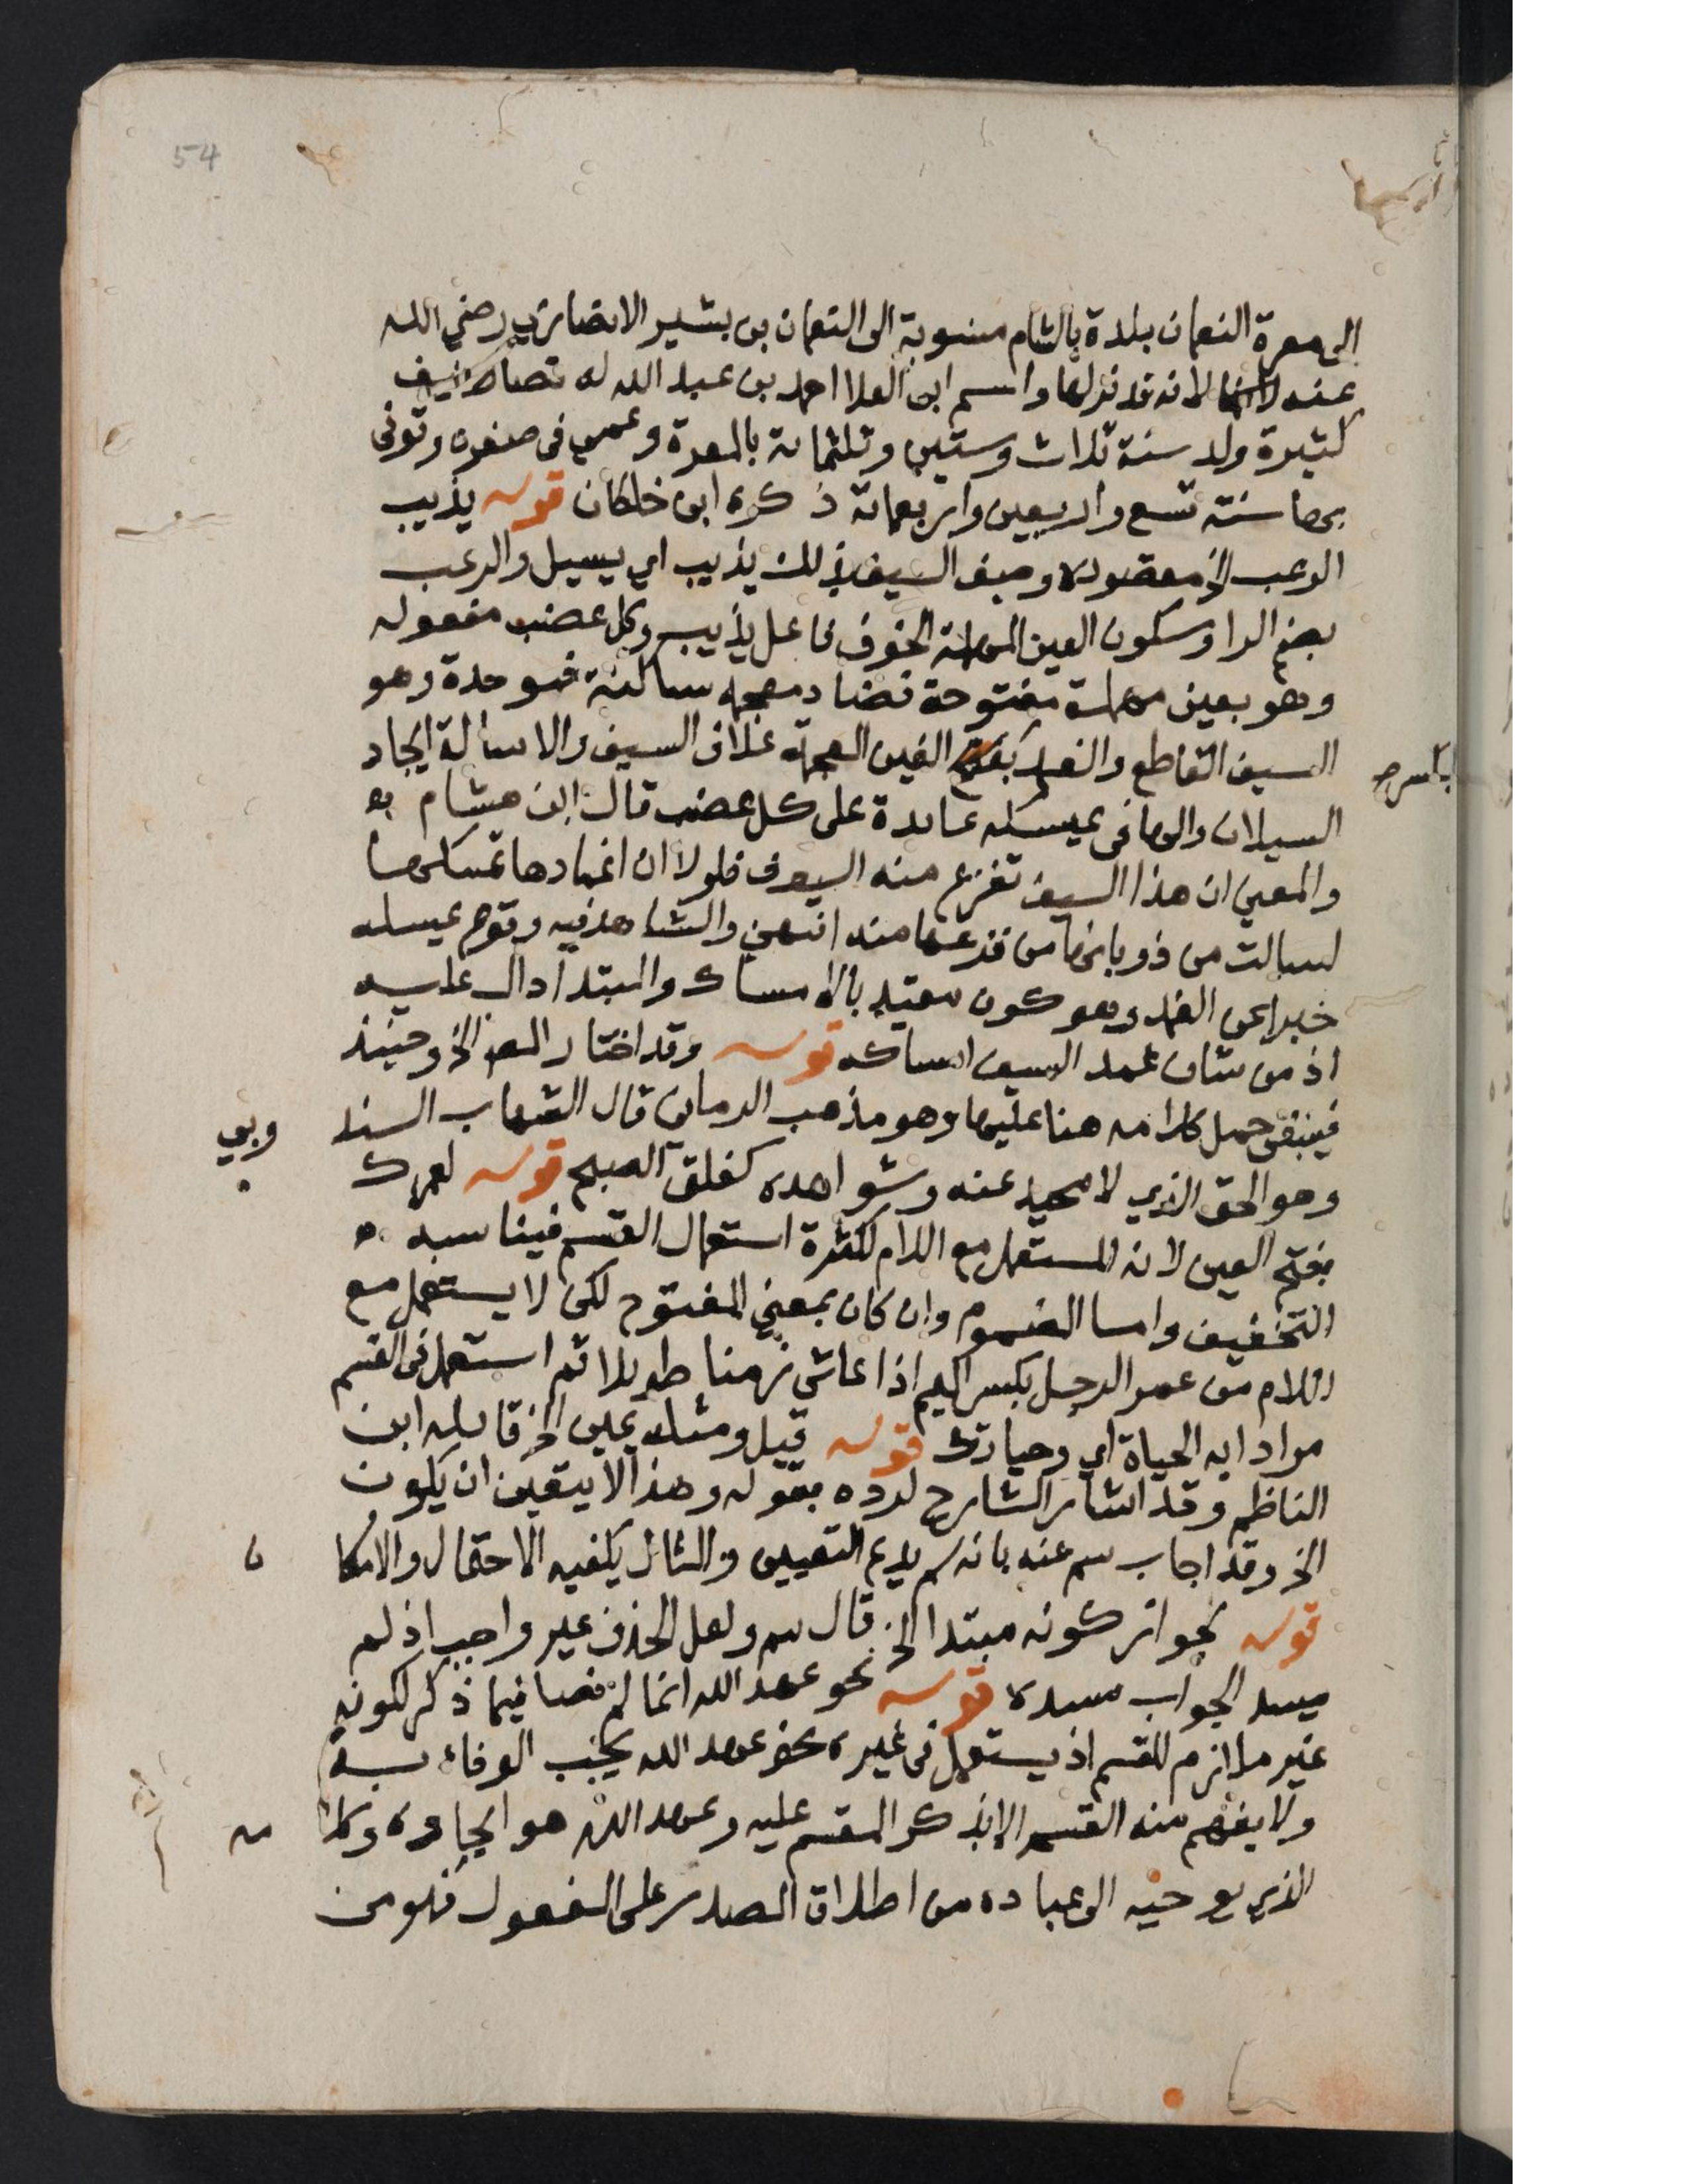 54
الى معرة النعمان بلدة بالشام منسوبة الى النعمان بن بشير الانصاري رضي الله
عنه لانه قد نزلها واسم ابن العلا احمد بن عبد الله له تصانيف
كثيرة ولد سنة ثلاث وستين وثلثماية بالمعرة وعمي في صغره وتوفى
بها سنة تسع واربعين واربعماية ذكره ابن خلكان قوله يذيب
الرعب الخ مقصوده وصف السيف بذلك يذيب اي يسيل والرعب
بضم الرا وسكون العين المهملة الخوف فاعل يذيب وكل عضب مفعوله
وهو بعين مهملة مفتوحة فضاد معجمه ساكنة فموحدة وهو
السيف القاطع والغمد بفتح الغين المعجمة غلاف السيف والاسالة ايجاد
بكسر صح
السيلان والها في يمسكه عايدة على كل عضب قال ابن هشام
والمعني ان هذا السيف تفزع منه السيوف فلولا ان اغمادها تمسكها
لسالت من ذوبانها من فزعها منه انتهي والشاهد فيه وقوع يمسكه
خبرا عن الغمد وهو كون مقيد بالامساك والمبتدا دال عليه
اذ من شان غمد السيف امساكه قوله وقد اختار المص الخ وحينئذ
فينبغي حمل كلامه هنا عليها وهو مذهب الرماني قال الشهاب السند
وبي
وهو الحق الذي لا محيد عنه وشواهده كفلق الصبح قوله لعمرك
بفتح العين لانه المستعمل مع اللام لكثرة استعمال القسم فيناسبه
التخفيف واما المضموم وان كان بمعني المفتوح لكن لا يستعمل مع
اللام من عمر الرجل بكسر الميم اذا عاش زمنا طويلا ثم استعمل في القسم
مرادا به الحياة اي وحياتك قوله قيل ومثله يمين الخ قايله ابن
الناظم وقد اشار الشارح لرده بقوله وهذا لا يتعين ان يكون
الخ وقد اجاب سم عنه بانه لم يدع التعيين والمثال يكفيه الاحتمال والامكا
ن
قوله لجواز كونه مبتدا الخ قال سم ولعل الحذف غير واجب اذ لم
يسد الجواب مسده قوله نحو عهد الله انما لم نصا فيما ذكر لكونه
غير ملازم للقسم اذ يستعمل في غيره نحو عهد الله يجب الوفاء به
ولا يفهم منه القسم الا بذكر المقسم عليه وعهد الله هو ايجاده وكلا
مه
الذي يوحيه الى عباده من اطلاق المصدر على المفعول فهو من